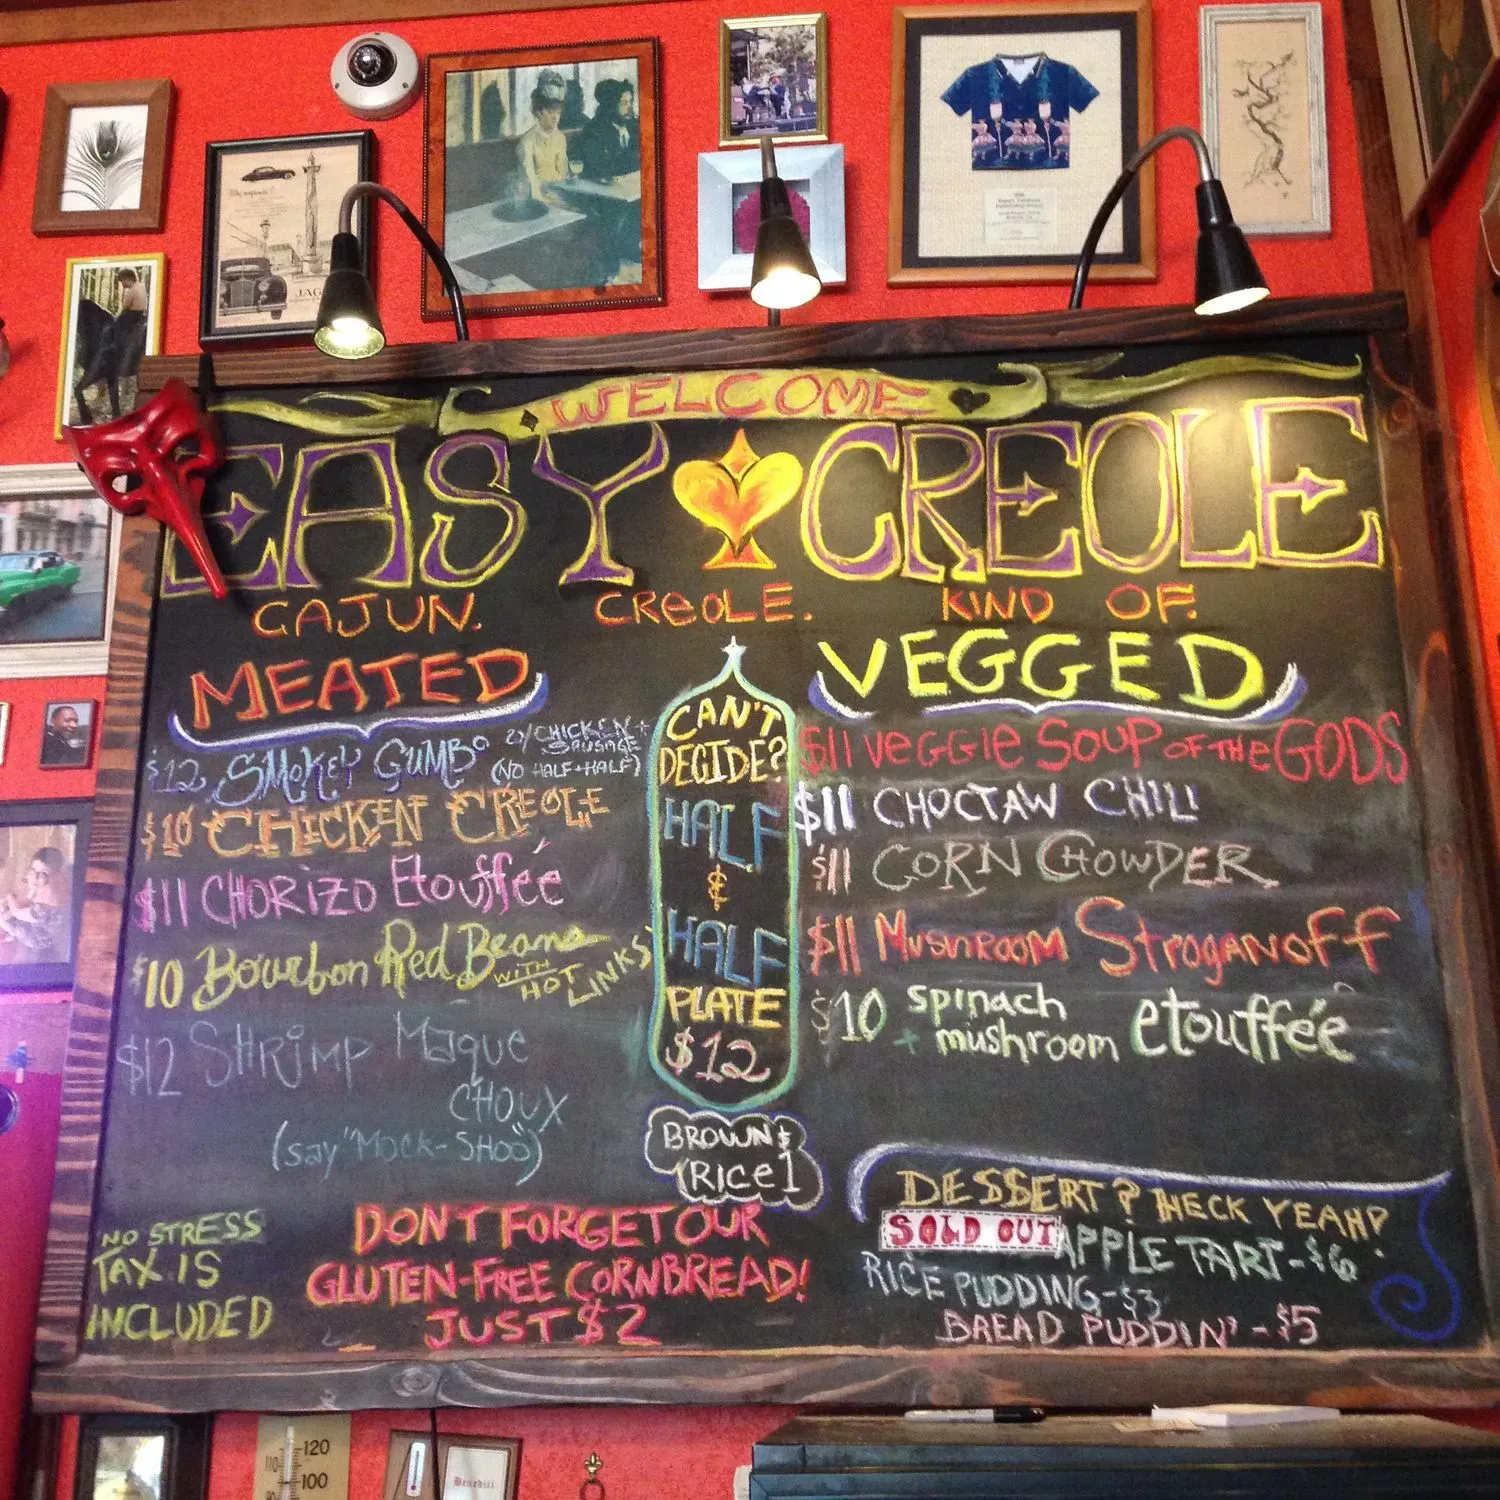 WELCOME
EASY CREOLE
CAJUN. CREOLE. KIND OF.
MEATED
$12 SMOKEY GUMBO W/ CHICKEN + SAUSAGE
(NO HALF + HALF)
$10 CHICKEN CREOLE
$11 CHORIZO Etouffée
$10 Bourbon Red Beans WITH HOT LINKS
$12 SHRIMP Maque
CHOUX
(say "MOCK-SHOO")
CAN'T
DECIDE?
HALF
&
HALF
PLATE
$12
BROWN $
RICE 1
VEGGED
$11 VEGGIE SOUP OF THE GODS
$11 CHOCTAW CHILI
$11 CORN CHOWDER
$11 MUSHROOM STROGANOFF
$10 spinach
+ mushroom etouffée
NO STRESS
TAX IS
INCLUDED
DON'T FORGET OUR
GLUTEN-FREE CORNBREAD!
JUST $2
DESSERT? HECK YEAH!
SOLD OUT APPLE TART-$6
RICE PUDDING-$3
BREAD PUDDIN'-$5
JAG
110 120
100
Benediti